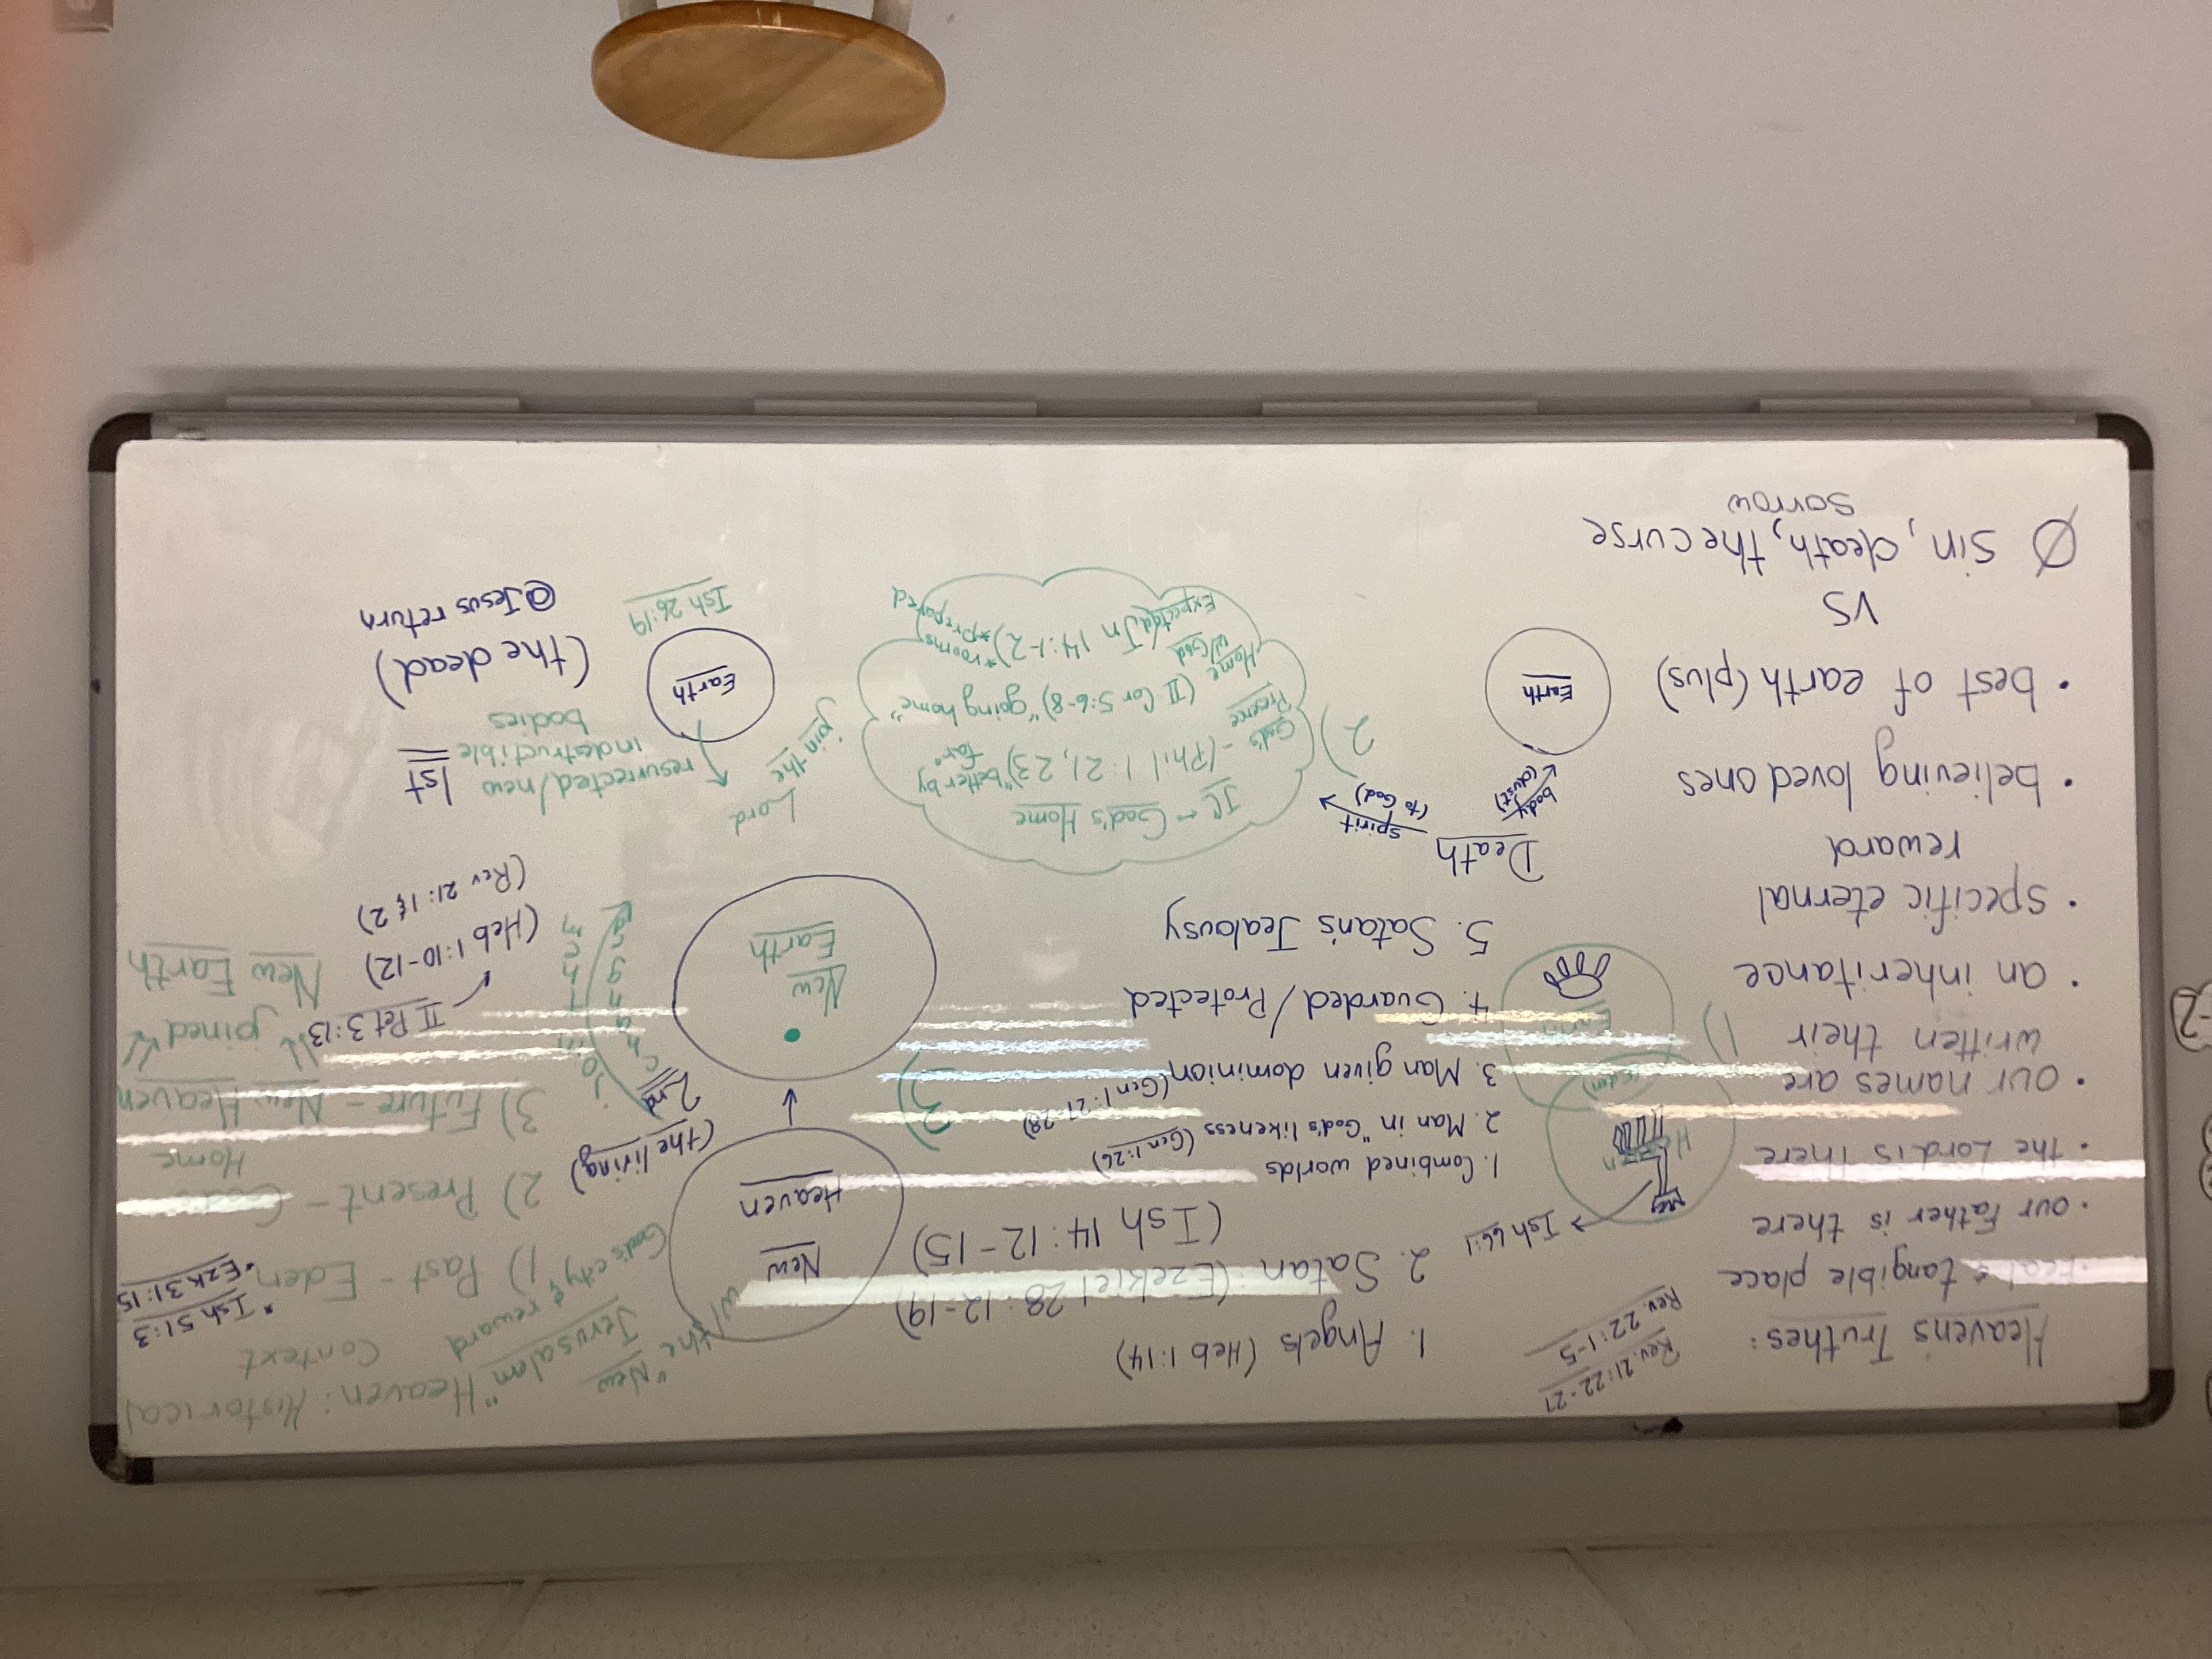 Heaven's Truthes:
• Real & tangible place
• our Father is there
• the Lord is there
• our names are
written their
• an inheritance
• specific eternal
reward
• believing loved ones
• best of earth (plus)
VS
Ø sin, death, the curse
sorrow
Rev. 21:22-27
Rev. 22:1-5
→ Ish 66:1
Heaven
(eden)
Earth
1)
1. Angels (Heb 1:14)
2. Satan: (Ezekiel 28:12-19)
(Ish 14:12-15)
1. Combined worlds
2. Man in "God's likeness (Gen 1:26)
3. Man given dominion (Gen 1:27-28)
4. Guarded/Protected
5. Satan's Jealousy
Death
spirit
(to God)
body
(dust)
Earth
2)
JC - God's Home
God's
Presence
- (Phil 1:21,23) "better by
far"
Home
w/God
(II Cor 5:6-8) "going home"
Expected
(Jn 14:1-2)
*rooms
*prepared
3)
New
Heaven
New
Earth
w/ the
"New
Jerusalem"
God's city & reward
(the living)
2nd
changed
Join Him
join the
Lord
Earth
Ish 26:19
resurrected/new
indestructible
bodies
1st
(the dead)
@Jesus return
Heaven: Historical
Context
1) Past - Eden
* Ish 51:3
• Ezk 31:15
2) Present - God's
Home
3) Future - New Heaven
joined
New Earth
II Pet 3:13
(Heb 1:10-12)
(Rev 21:1&2)